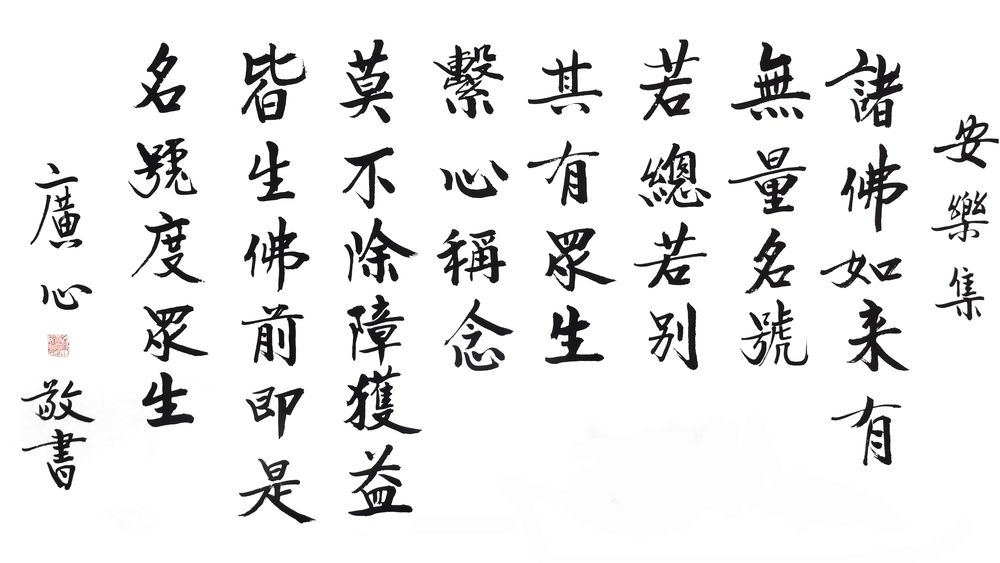 安樂集
諸佛如来有
無量名號
若總若别
其有眾生
繫心稱念
莫不除障獲益
皆生佛前即是
名號度眾生
廣心
敬書